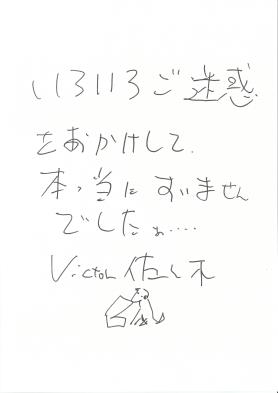 いろいろご迷惑
をおかけして、
本当にすいません
でしたぉ....
Victor 佐々木